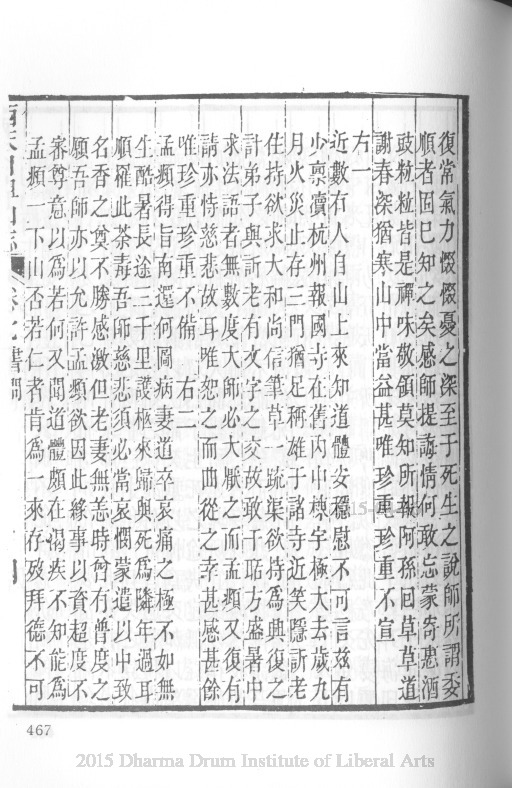 復常氣力惙惙憂之深至于死生之說師所謂委
順者固已知之矣感師提誨情何敢忘蒙寄惠酒
豉粒粒皆是禪味敬領莫知所報阿孫回草草道
謝春深猶寒山中當益甚唯珍重珍重不宣
右一
近數有人自山上來知道體安穩慰不可言茲有
少稟瀆杭州報國寺在舊內中棟宇極大去歲九
月火災止存三門猶足稱雄于諸寺近笑隱訢老
住持欲求大和尚信筆草一疏渠欲持為興復之
計弟子與訢老有文字之交故敢干聒方盛暑中
求法語者無數度大師必大厭之而孟頫又復有
請亦恃慈悲故耳唯恕之而曲從之幸甚感甚餘
唯珍重珍重不備 右二
孟頫得旨南還何圖病妻道卒哀痛之極不如無
生酷暑長途三千里護柩來歸與死為隣年過耳
順罹此荼毒吾師慈悲須必當哀憫蒙遣以中致
名香之奠不勝感激但老妻無恙時曾有普度之
願吾師亦以允許孟頫欲因此緣事以資超度不
審尊意以為若何又聞道體頗在渴疾不知能為
孟頫一下山否若仁者肯為一來存歿拜德不可
卷九書問
467
2015 Dharma Drum Institute of Liberal Arts